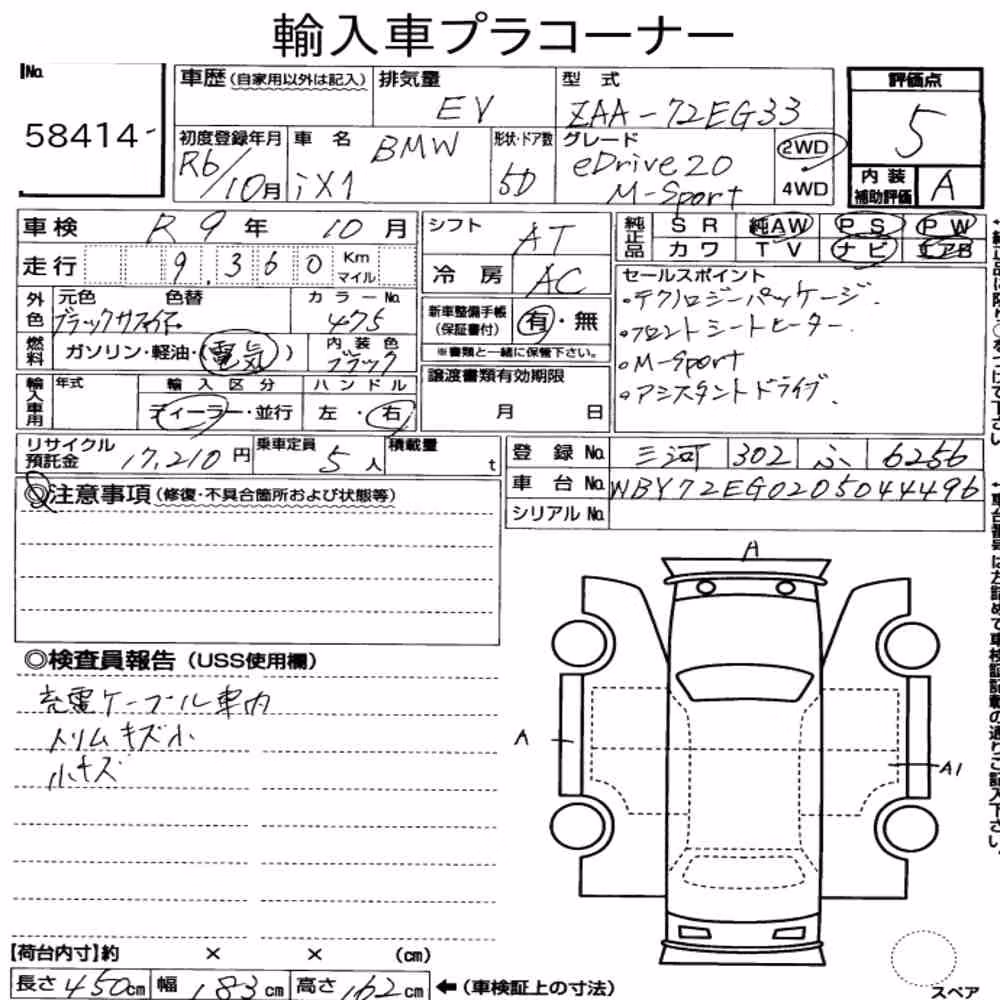 輸入車プラコーナー
No.
58414
車歴(自家用以外は記入)
排気量
EV
型式
ZAA-72EG33
評価点
5
初度登録年月
R6/10月
車名
BMW
iX1
形状・ドア数
5D
グレード
eDrive20
M-Sport
2WD
4WD
内装
補助評価
A
車検 R9年 10月
走行 9.360 Km
マイル
シフト AT
冷房 AC
純正品
SR 純AW PS PW
カワ TV ナビ エアB
外色
元色 色替 カラーNo.
475
燃料
ガソリン・軽油・(電気)
内装色
ブラック
新車整備手帳
(保証書付)
有・無
※書類と一緒に保管下さい。
セールスポイント
・テクノロジーパッケージ.
・フロントシートヒーター.
・M-Sport
・アシスタントドライブ.
輸入車用
年式
輸入区分
ディーラー・並行
ハンドル
左・右
譲渡書類有効期限
月 日
リサイクル
預託金
17,210円
乗車定員
5人
積載量
t
登録No. 三河 302 ふ 6256
車台No. WBY72EG0205044496
シリアルNo.
注意事項(修復・不具合箇所および状態等)
◎検査員報告(USS使用欄)
充電ケーブル車内
トリムキズ小
小キズ
A
A
A1
【荷台内寸】約 × × (cm)
長さ 450cm 幅 183cm 高さ 162cm
←(車検証上の寸法)
スペア